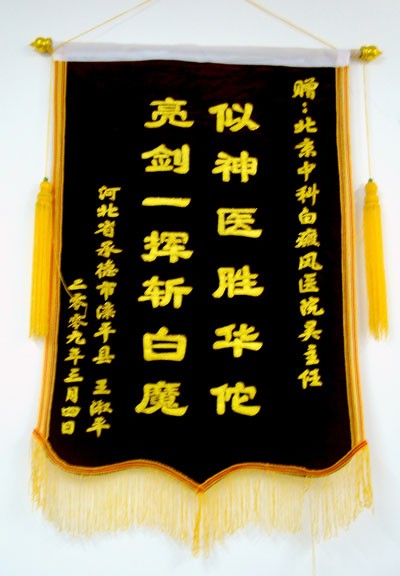 赠：北京中科白癜风医院吴主任
似神医胜华佗
亮剑一挥斩白魔
河北省承德市滦平县 王淑平
二零零九年三月四日